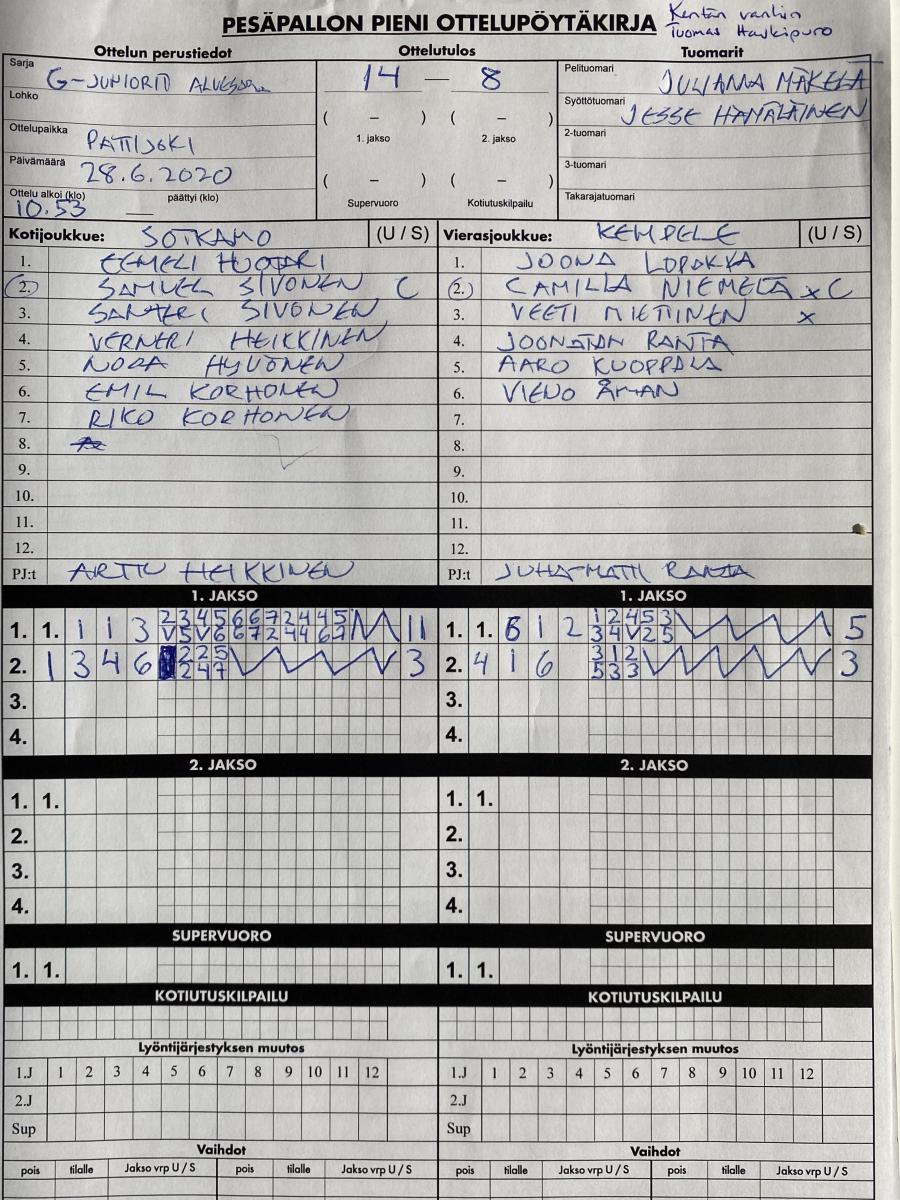 PESÄPALLON PIENI OTTELUPÖYTÄKIRJA
Kentän vanhin
Tuomas
Ottelun perustiedot
Ottelutulos
Tuomarit
Sarja
G-JUNIORIT
Lohko
Ottelupaikka
PATTIJOKI
Päivämäärä
28.6.2020
Ottelu alkoi (klo) päättyi (klo)
10.53
14 – 8
( – ) ( – )
1. jakso 2. jakso
( – ) ( – )
Supervuoro Kotiutuskilpailu
Pelituomari
JULIANA MÄKELÄ
Syöttötuomari
JESSE HÄMÄLÄINEN
2-tuomari
3-tuomari
Takarajatuomari
Kotijoukkue: SOTKAMO (U / S)
1. EEMELI HUOTARI
2. SAMUEL SIVONEN C
3. SANTERI SIVONEN
4. VERNERI HEIKKINEN
5. NOORA HYVÖNEN
6. EMIL KORHONEN
7. RIKO KORHONEN
8.
9.
10.
11.
12.
PJ:t ARTTU HEIKKINEN
Vierasjoukkue: KEMPELE (U / S)
1. JOONA
2. CAMILLA NIEMELÄ x C
3. VEETI MIETTINEN x
4. JOONATAN RANTA
5. AARO KUOPPALA
6. VIENO ÅMAN
7.
8.
9.
10.
11.
12.
PJ:t JUHA-MATTI RANTA
1. JAKSO
1. 1. 1 1 3 2 3 4 5 6 6 7 2 4 4 5 11
V 5 V 6 6 7 2 4 4 6 7
2. 1 3 4 6 2 2 5 3
2 4 7
3.
4.
1. JAKSO
1. 1. 6 1 2 1 2 4 5 3 5
3 4 V 2 5
2. 4 1 6 3 1 2 3
5 3 3
3.
4.
2. JAKSO
1. 1.
2.
3.
4.
2. JAKSO
1. 1.
2.
3.
4.
SUPERVUORO
1. 1.
SUPERVUORO
1. 1.
KOTIUTUSKILPAILU
KOTIUTUSKILPAILU
Lyöntijärjestyksen muutos
1.J 1 2 3 4 5 6 7 8 9 10 11 12
2.J
Sup
Lyöntijärjestyksen muutos
1.J 1 2 3 4 5 6 7 8 9 10 11 12
2.J
Sup
Vaihdot
pois tilalle Jakso vrp U / S pois tilalle Jakso vrp U / S
Vaihdot
pois tilalle Jakso vrp U / S pois tilalle Jakso vrp U / S